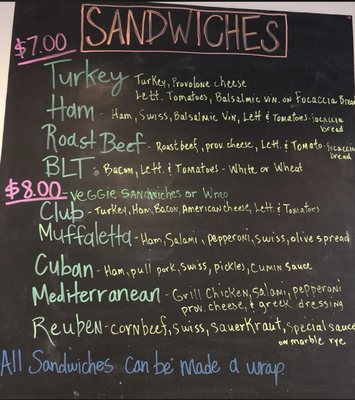 SANDWICHES
$7.00
Turkey Turkey, Provolone cheese
Lett. Tomatoes, Balsalmic Vin. on Focaccia Bread
Ham - Ham, Swiss, Balsalmic Vin, Lett & Tomatoes - focaccia
bread
Roast Beef - Roast beef, prov. cheese, Lett & Tomato - focaccia
Bread
BLT - Bacon, Lett. & Tomatoes - White or Wheat
$8.00 Veggie Sandwiches or Wrap
Club - Turkey, Ham, Bacon, American cheese, Lett. & Tomators
Muffaletta - Ham, Salami, pepperoni, Swiss, olive spread
Cuban - Ham, pull pork, Swiss, pickles, Cumin sauce
Mediterranean - Grill Chicken, Salami, pepperoni
prov. cheese, & greek dressing
Reuben - corn beef, Swiss, Sauerkraut, special sauce
on marble rye
All Sandwiches Can be made a wrap